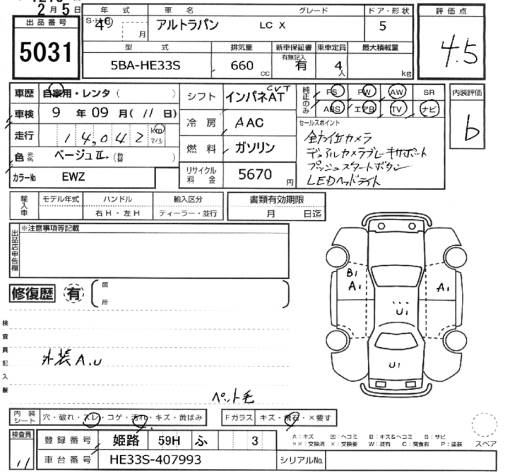 2月5日
出品番号 年式 車名 グレード ドア・形状 評価点
5031 S・H 4 年 月 アルトラパン LC X 5 4.5
型式 排気量 新車保証書 有無記入 乗車定員 最大積載量
5BA-HE33S 660cc 有 4人 kg
車歴 自家用・レンタ( ) シフト インパネAT CVT 純正のみ PS PW AW SR 内装評価
車検 9年09月(11日) ABS エアB TV ナビ b
走行 14,042 km マイル 冷房 AAC セールスポイント
色 ベージュⅡ 燃料 ガソリン 全方位カメラ
カラーNo EWZ リサイクル料金 5670円 デュアルカメラブレーキサポート
プッシュスタートボタン
LEDヘッドライト
輸入車 モデル年式 ハンドル 輸入区分 書類有効期限
右H・左H ディーラー・並行 月 日迄
出品店申告欄 ※注意事項等記載
修復歴 有 箇所
B1 A1 A1
U1
U1
検査員記入欄
外装A.U
ペット毛
内装シート 穴・破れ・スレ・コゲ・汚れ・キズ・黄ばみ Fガラス キズ・飛石・×要す
検査員 登録番号 姫路 59H ふ 3
11 車台番号 HE33S-407993 シリアルNo.
A:キズ U:ヘコミ B:キズ&ヘコミ S:サビ
スペア